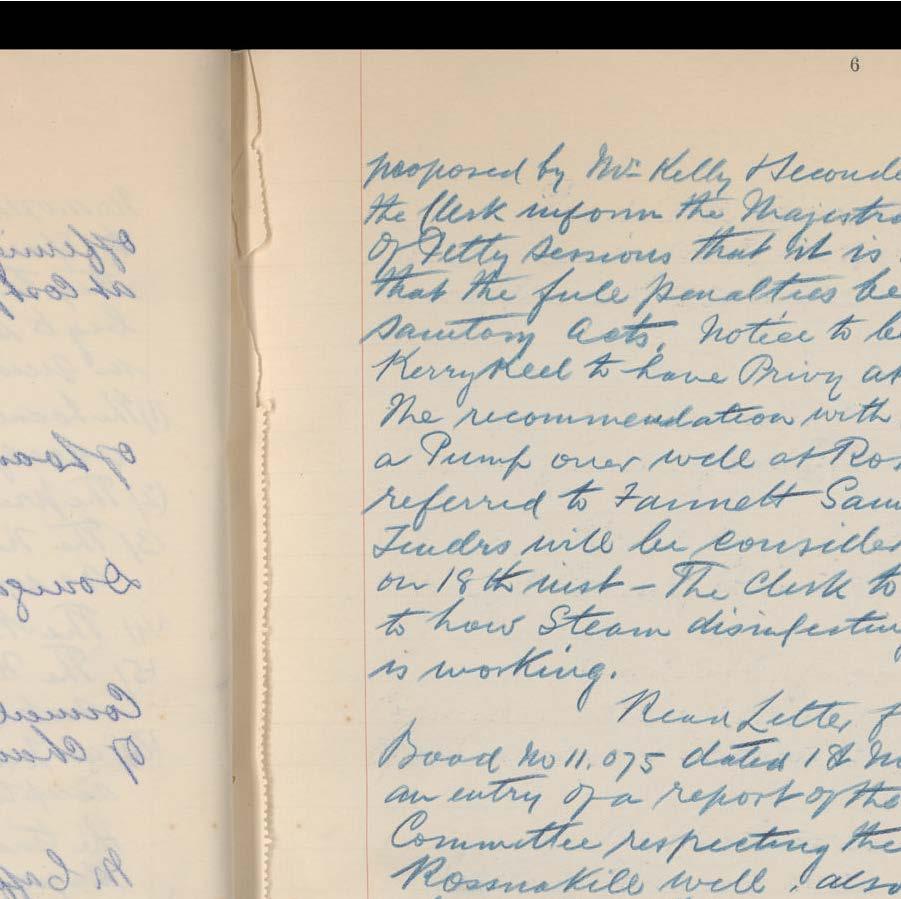 6
proposed by Mr Kelly & Seconde
the Clerk inform the Magistra
Of Petty Sessions that it is
that the full penalties be
Sanitary Acts, Notice to be
Kerrykeel to have Privy at
The recommendation with
a Pump over well at Ros
referred to Fannett Sani
Tendrs will be consider
on 18th inst - The Clerk to
to how Steam disinfectin
is working.
Read Letter f
Board No 11.075 dated 18
an entry of a report of the
Committee respecting the
Rossnakill well, also